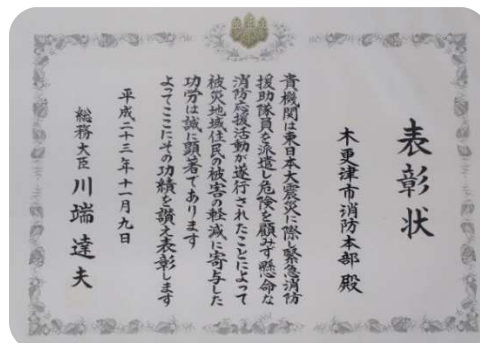 表彰状
木更津市消防本部 殿
貴機関は東日本大震災に際し緊急消防
援助隊員を派遣し危険を顧みず懸命な
消防応援活動が遂行されたことによって
被災地域住民の被害の軽減に寄与した
功労は誠に顕著であります
よってここにその功績を讃え表彰します
平成二十三年十一月九日
総務大臣 川端達夫